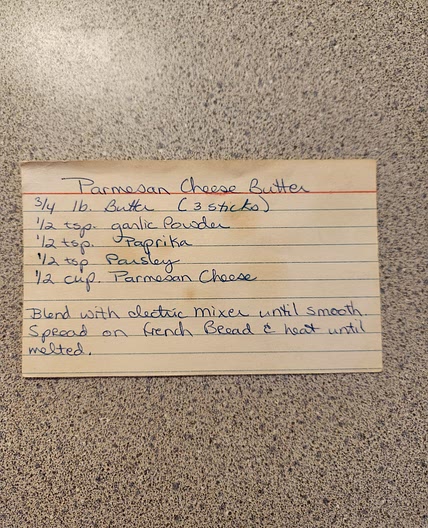 Parmesan Cheese Butter
3/4 lb. Butter (3 sticks)
1/2 tsp. garlic Powder
1/2 tsp. Paprika
1/2 tsp Parsley
1/2 cup. Parmesan Cheese
Blend with electric mixer until smooth.
Spread on French Bread & heat until
melted.